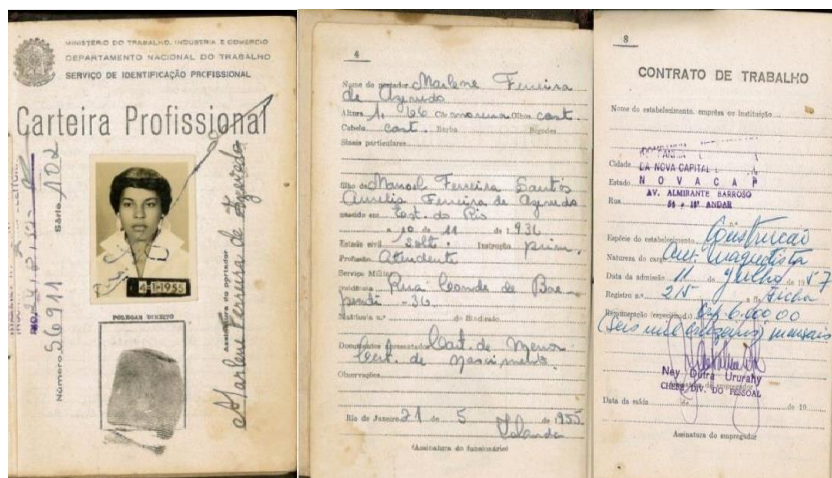 MINISTÉRIO DO TRABALHO, INDUSTRIA E COMERCIO
DEPARTAMENTO NACIONAL DO TRABALHO
SERVIÇO DE IDENTIFICAÇÃO PROFISSIONAL
Carteira Profissional
Número 56911 Série 102
4-1-1955
Assinatura do portador
Marlene Ferreira de Azeredo
POLEGAR DIREITO
4
Nome do portador Marlene Ferreira
de Azeredo
Altura 1,66 Cor morena Olhos cast.
Cabelo cast. Barba Bigodes
Sinais particulares
filho de Manoel Ferreira Santos
Aurelia Ferreira de Azeredo
nascido em Est. do Rio
a 10 de 11 de 1936
Estado civil solt. Instrução prim.
Profissão Atendente
Serviço Militar
residência Rua Conde de Bae
pendi - 36
Matrícula n.º do Sindicado
Documentos apresentados Cart. de Menor
Cert. de nascimento.
Observações
Rio de Janeiro 21 de 5 de 1955
(Assinatura do funcionário)
8
CONTRATO DE TRABALHO
Nome do estabelecimento, emprêsa ou instituição
Cidade DA NOVA CAPITAL
Estado NOVACAP
Rua AV. ALMIRANTE BARROSO
54 - 18º ANDAR
Espécie do estabelecimento Construcão
Natureza do cargo Aux. Maquetista
Data da admissão 11 de Julho de 1957
Registro n.º 215 a fls. Ficha
Remuneração (especificada) Cr$ 6.000,00
(Seis mil cruzeiros) mensais
Ney Dutra Ururahy
CHEFE DIV. DO PESSOAL
Data da saída de de 19
Assinatura do empregador